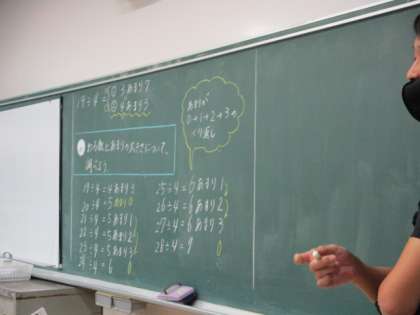 19÷4= 3あまり7
4あまり3
あまりが
0→1→2→3の
くり返し
わる数とあまりの大きさについて
調べよう。
19÷4=4あまり3
20÷4=5あまり0
21÷4=5あまり1
22÷4=5あまり2
23÷4=5あまり3
24÷4=6 0
25÷4=6あまり1
26÷4=6あまり2
27÷4=6あまり3
28÷4=9 0